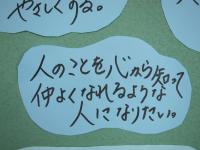 やさしくのる。
人のことを心から知って
仲よくなれるような
人になりたい。